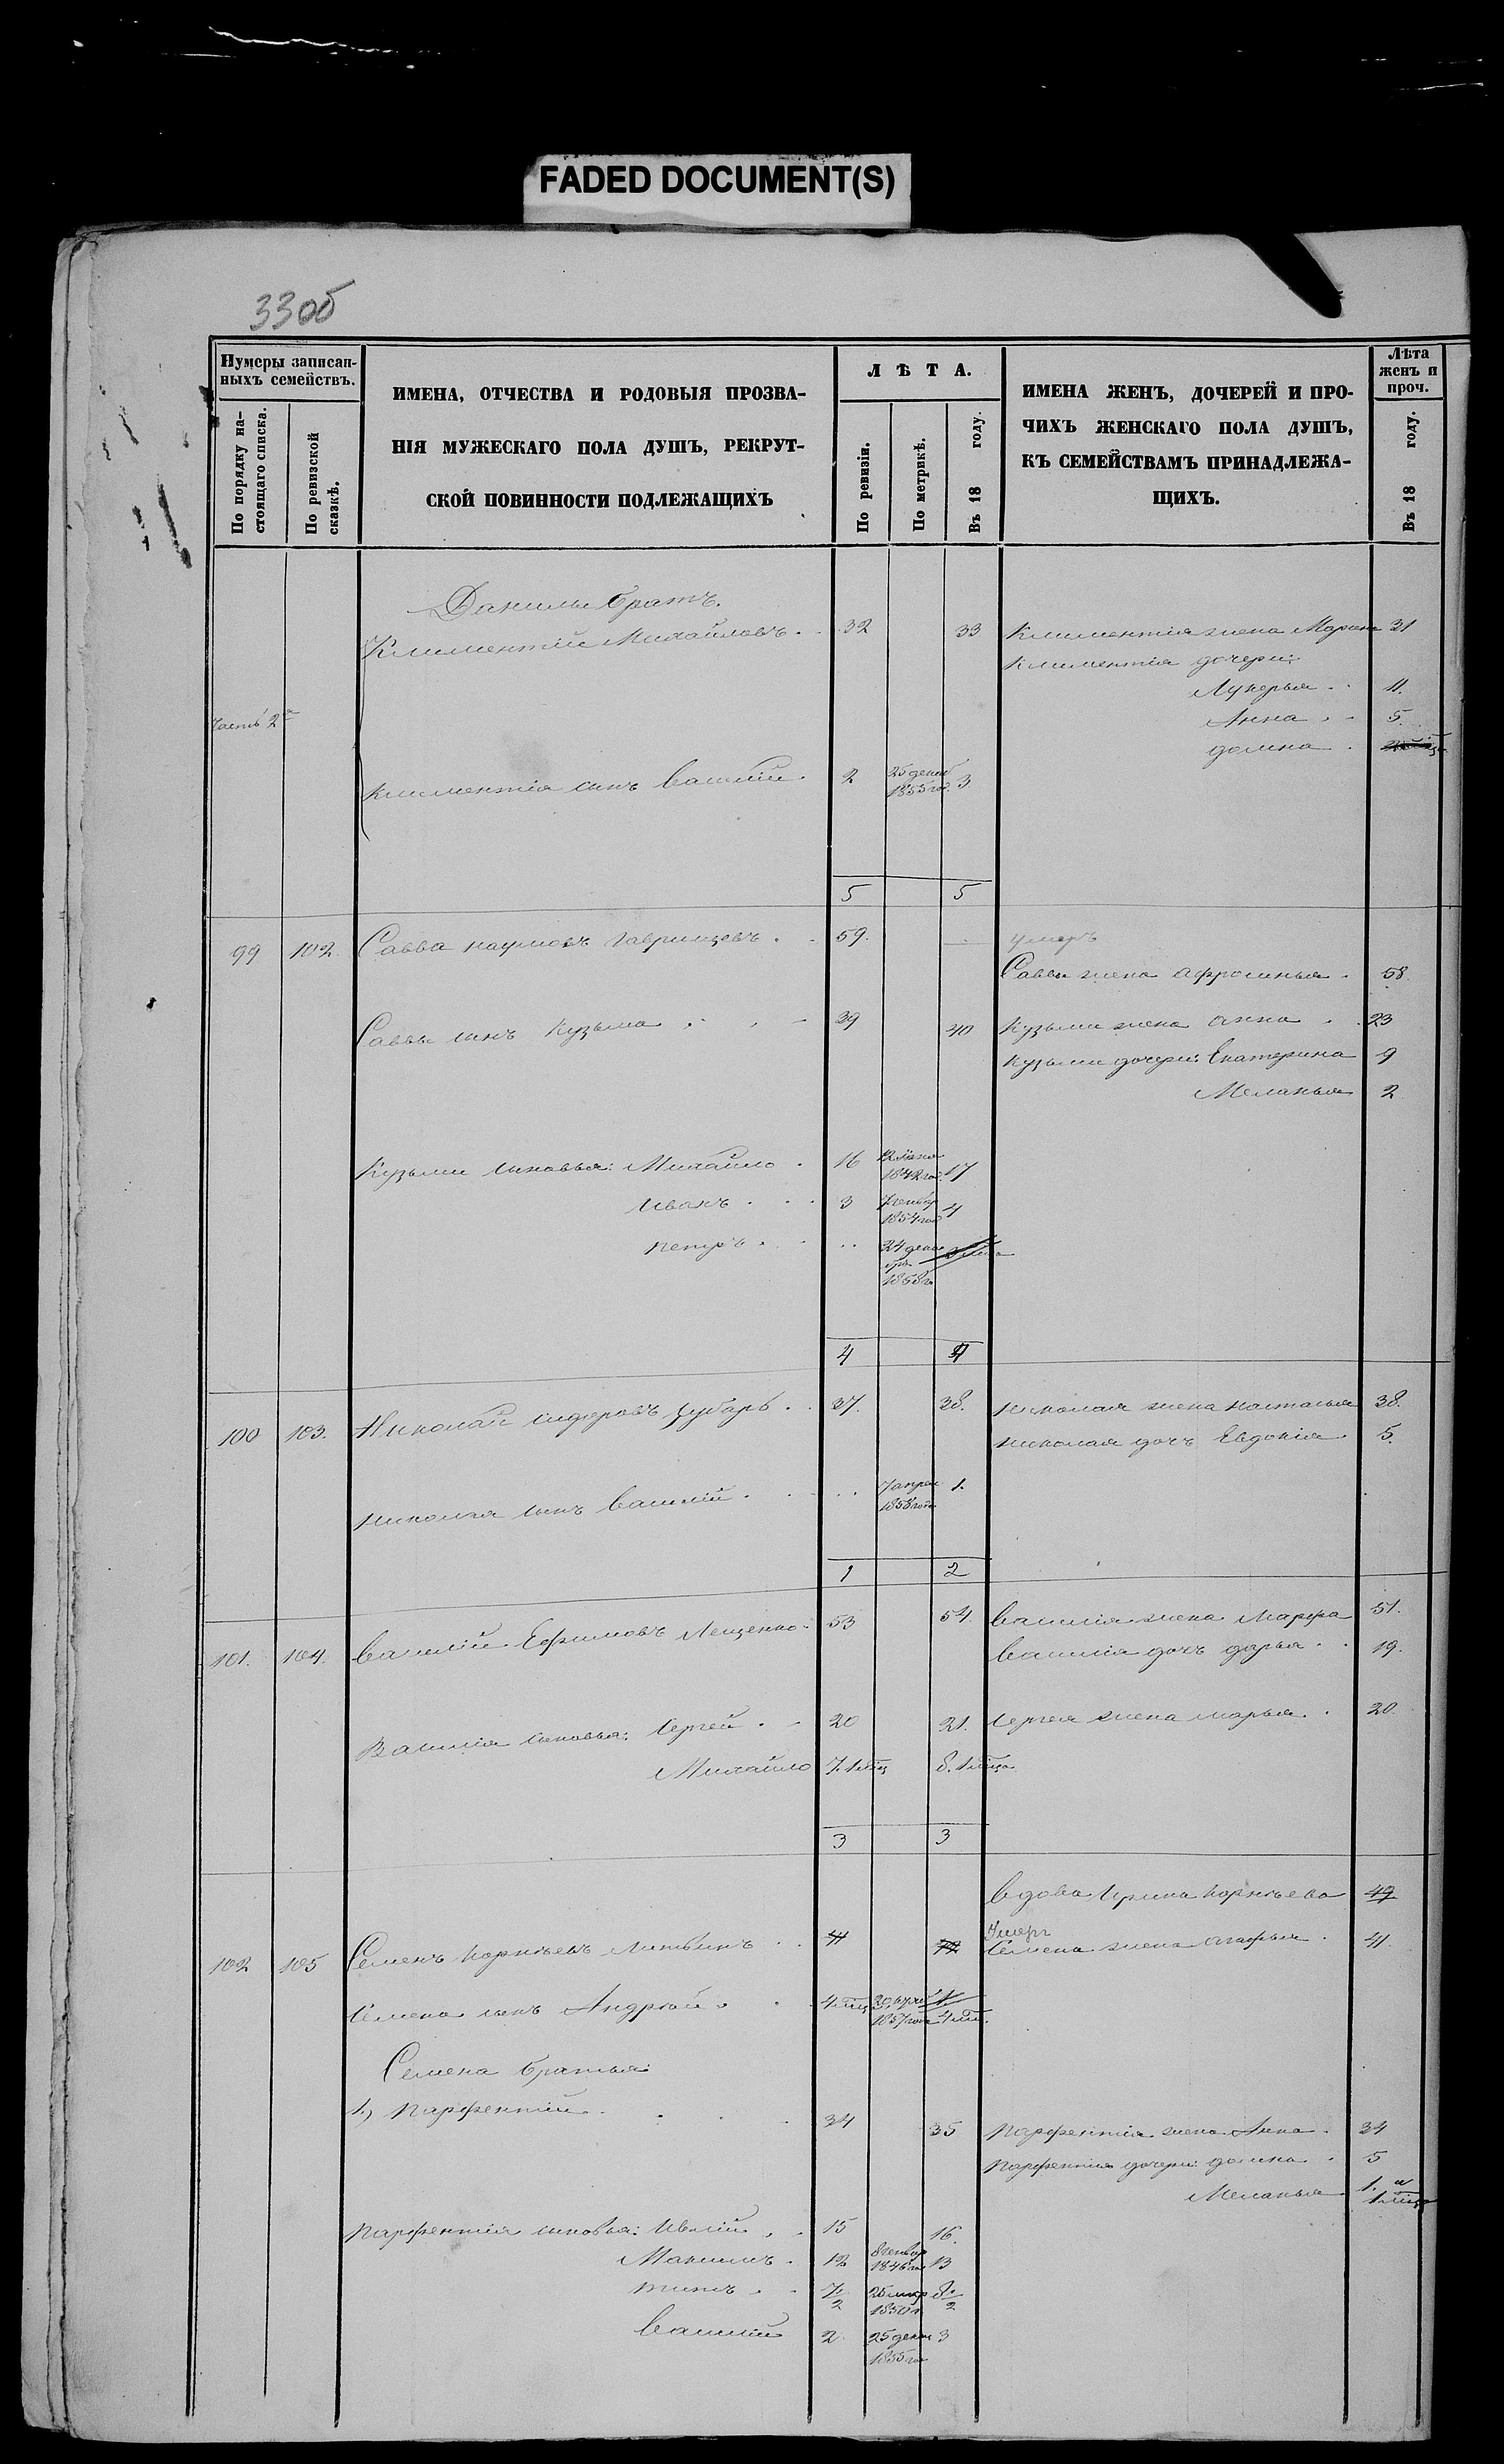 FADED DOCUMENT(S)
33об
Нумеры записан-
ныхъ семействъ.
По порядку на-
стоящаго списка.
По ревизской
сказкѣ.
ИМЕНА, ОТЧЕСТВА И РОДОВЫЯ ПРОЗВА-
НІЯ МУЖЕСКАГО ПОЛА ДУШЪ, РЕКРУТ-
СКОЙ ПОВИННОСТИ ПОДЛЕЖАЩИХЪ
ЛѢТА.
По ревизіи.
По метрикѣ.
Въ 18 году.
ИМЕНА ЖЕНЪ, ДОЧЕРЕЙ И ПРО-
ЧИХЪ ЖЕНСКАГО ПОЛА ДУШЪ,
КЪ СЕМЕЙСТВАМЪ ПРИНАДЛЕЖА-
ЩИХЪ.
Лѣта
женъ и
проч.
Въ 18 году.
Данилы братъ.
Климентій Михайловъ 32 33 Климентія жена Марина 31
Климентія дочери:
Лукерья 11.
Анна 5.
Часть 2я
домна
Климентія сынъ Василій 2 25 декаб 3
1855 год.
5 5
99 102. Савва наумовъ Гавришевъ 59. умеръ
Саввы жена Афросинья 58.
Саввы сынъ Кузьма 39 40 Кузьмы жена анна 23
Кузьмы дочери: Екатерина 9
Меланья 2
Кузьмы сыновья: Михайло 16 17
1842 год.
иванъ 3 4
1854 год
петръ 24 дека
бря
1858 г.
4 4
100 103. Николай сидоровъ зубарь 37. 38. николая жена настасья 38.
николая дочъ Евдокія 5.
николая сынъ Василій 7 апрел 1.
1858 года
1 2
101. 104. Василій Ефимовъ Лещенко 53 54 Василія жена Марфа 51.
Василія дочъ дарья 19.
Василія сыновья: Сергей 20 21. Сергея жена марья 20.
Михайло 7. 1 мѣц 8. 1 мѣца
3 3
Вдова Ирина Корнѣева 49
Умеръ
102 105 Семенъ Корнѣевъ Литвинъ 41 42 Семена жена Агафья 41.
Семена сынъ Андрѣй 4 мѣц 1
1857 года 4 мѣ.
Семена братья:
1) Парфентій 34 35 Парфентія жена Анна 34
Парфентія дочери: домна 5
Меланья 1. и
1 мѣца
Парфентія сыновья: 15 16.
Максимъ 12 8 генвар 13
1846 го
титъ 7 1/2 25 8 1/2
1850 г.
Василій 2. 25 дека 3
1855 го